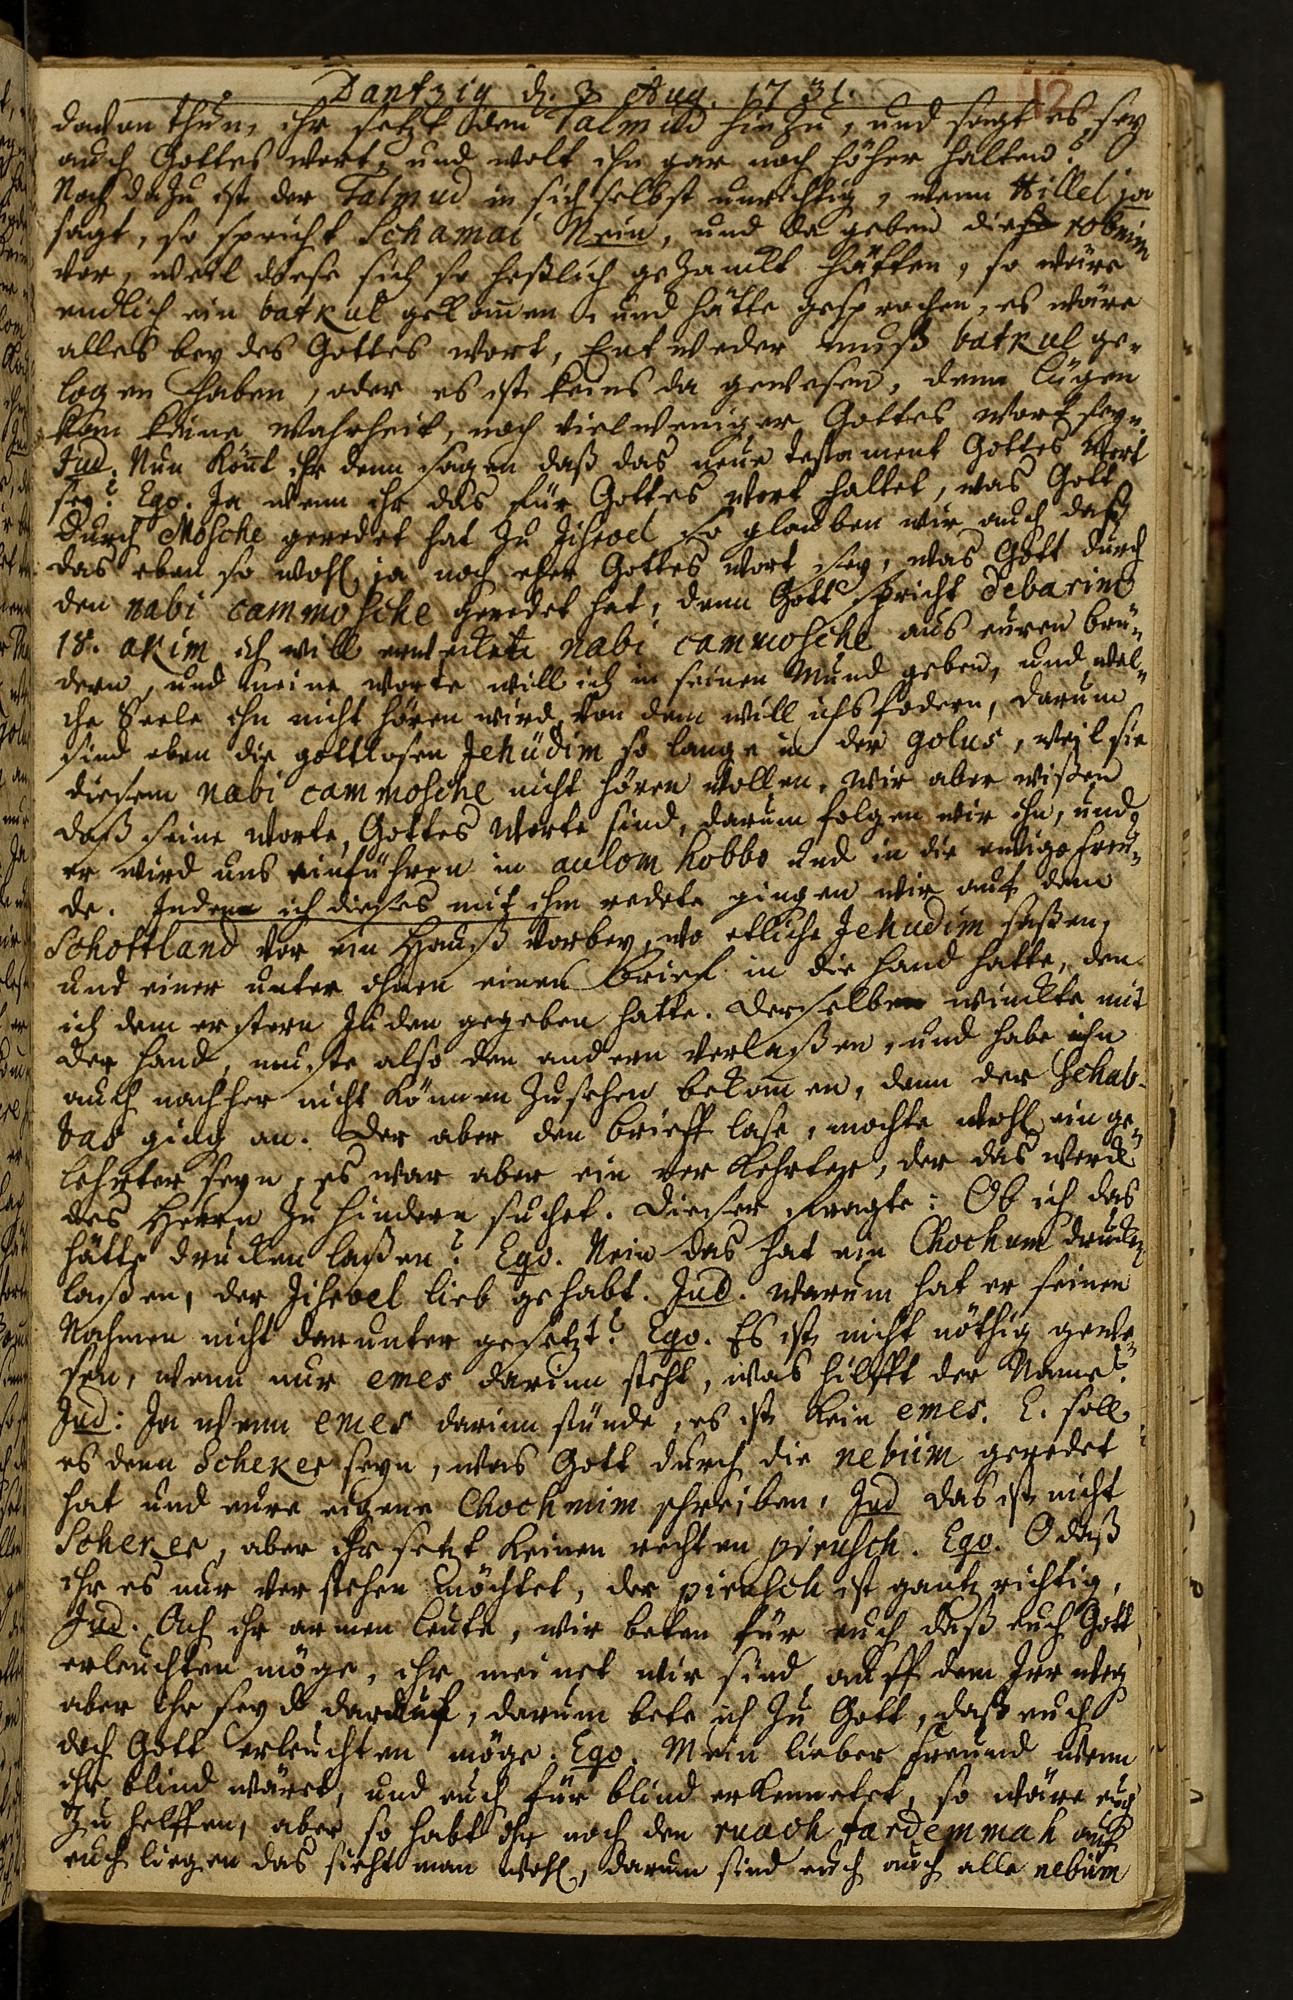 Dantzig d. 3 Aug. 1731.
12
davon thun, ihr setzt den Talmud hinzu, und sagt es sey
auch Gottes wort, und wolt ihn gar noch höher halten?
Noch dazu ist der Talmud in sich selbst unrichtig, wenn Hillel ja
sagt, so spricht Schamai Nein, und da geben die robnim
vor, weil diese sich so heßlich gezankt hätten, so wäre
endlich ein batkul gekom̄en und hätte gesprochen, es wäre
alles beydes Gottes wort, Entweder muß batkul ge-
logen haben, oder es ist keins da gewesen, denn lügen
kan keine Wahrheit, noch vielweniger Gottes wort seyn.
Jud. Nun kön̄t ihr denn sagen daß das neue testament Gottes Wort
sey? Ego. Ja wenn ihr das für Gottes Wort haltet, was Gott
durch Mosche geredet hat zu Jisroel so glauben wir auch daß
das eben so wohl, ja noch eher Gottes Wort sey, was Gott durch
den nabi cammosche geredet hat, denn Gott spricht debarim
18. akim ich will erwecken nabi cammosche aus euren brü-
dern, und meine worte will ich in seinen Mund geben, und wel-
che Seele ihn nicht hören wird, von dem will ichs fodern, darum
sind eben die gottlosen Jehüdim so lange in der golus, weil sie
diesem nabi cammosche nicht hören wollen, wir aber wißen
daß seine Worte, Gottes Worte sind, darum folgen wir ihn, und
er wird uns einführen in aulom hobbo und in die ewige freu-
de. Indem ich dieses mit ihm redete gingen wir auf dem
Schottland vor ein Hauß vorbey, wo etliche Jehudim saßen,
und einer unter ihnen einen brief in die hand hatte, den
ich dem erstern Juden gegeben hatte. Derselbe winckte mit
der hand, muste also den andern verlaßen, und habe ihn
auch nachher nicht können zusehen bekom̄en, denn der Schab-
bas ging an. Der aber den brieff lase, mochte wohl ein ge-
lehrter seyn, es war aber ein verkehrter, der das werck
des Herrn zu hindern suchet. Dieser fragte: Ob ich das
hätte drucken laßen? Ego. Nein das hat ein Chochum drucken
laßen, der Jisroel lieb gehabt. Jud. warum hat er seinen
Nahmen nicht darunter gesetzt? Ego. Es ist nicht nöthig gewe-
sen, wenn nur emes darinn steht, was hilfft der Name?
Jud: Ja wenn emes darinn stünde, es ist kein emes. E. soll
es denn Scheker seyn, was Gott durch die nebiim geredet
hat und eure eigene Chochmim schreiben, Jud das ist nicht
Scheker, aber ihr setzt keinen rechten pirusch. Ego. O daß
ihr es nur verstehen möchtet, der pirusch ist gantz richtig,
Jud. Ach ihr armen leute, wir beten für euch daß euch Gott
erleuchten möge, ihr meinet wir sind auff dem Irrweg
aber ihr seyd darauf, darum bete ich zu Gott, daß euch
doch Gott erleuchten möge. Ego. Mein lieber freund wenn
ihr blind wäret, und euch für blind erkennetet, so wäre euch
zu helffen, aber so habt ihr noch den ruach tardemmah auf
euch liegen das sieht man wohl, darum sind euch auch alle nebiim